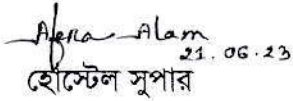 Afena Alam
21.06.23
হোস্টেল সুপার